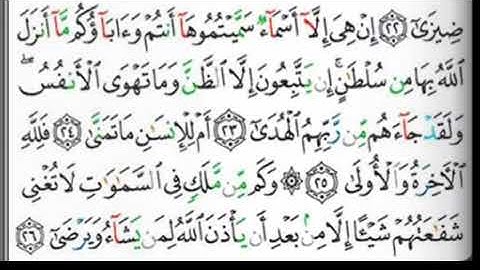 ضِيزَىٰٓ ٢٢ إِنْ هِىَ إِلَّآ أَسْمَآءٌ سَمَّيْتُمُوهَآ أَنتُمْ وَءَابَآؤُكُم مَّآ أَنزَلَ
ٱللَّهُ بِهَا مِن سُلْطَٰنٍ ۚ إِن يَتَّبِعُونَ إِلَّا ٱلظَّنَّ وَمَا تَهْوَى ٱلْأَنفُسُ ۖ
وَلَقَدْ جَآءَهُم مِّن رَّبِّهِمُ ٱلْهُدَىٰٓ ٢٣ أَمْ لِلْإِنسَٰنِ مَا تَمَنَّىٰ ٢٤ فَلِلَّهِ
ٱلْءَاخِرَةُ وَٱلْأُولَىٰ ٢٥ ۞ وَكَم مِّن مَّلَكٍ فِى ٱلسَّمَٰوَٰتِ لَا تُغْنِى
شَفَٰعَتُهُمْ شَيْـًٔا إِلَّا مِنۢ بَعْدِ أَن يَأْذَنَ ٱللَّهُ لِمَن يَشَآءُ وَيَرْضَىٰٓ ٢٦